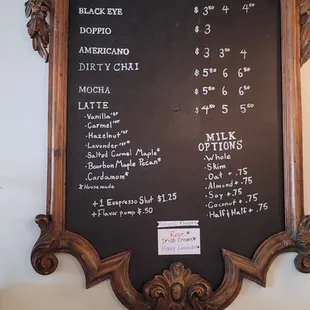 BLACK EYE $3⁵⁰ 4 4⁵⁰
DOPPIO $3
AMERICANO $3 3⁵⁰ 4
DIRTY CHAI $5⁵⁰ 6 6⁵⁰
MOCHA $5⁵⁰ 6 6⁵⁰
LATTE $4⁵⁰ 5 5⁵⁰
·Vanilla
·Carmel
·Hazelnut
·Lavender
·Salted Carmel Maple*
·Bourbon Maple Pecan*
·Cardamom*
*Housemade
+1 Espresso Shot $1.25
+Flavor pump $.50
MILK
OPTIONS
·Whole
·Skim
·Oat +.75
·Almond +.75
·Soy +.75
·Coconut +.75
·Half & Half +.75
Rose*
Irish Cream*
Honey Lavender*